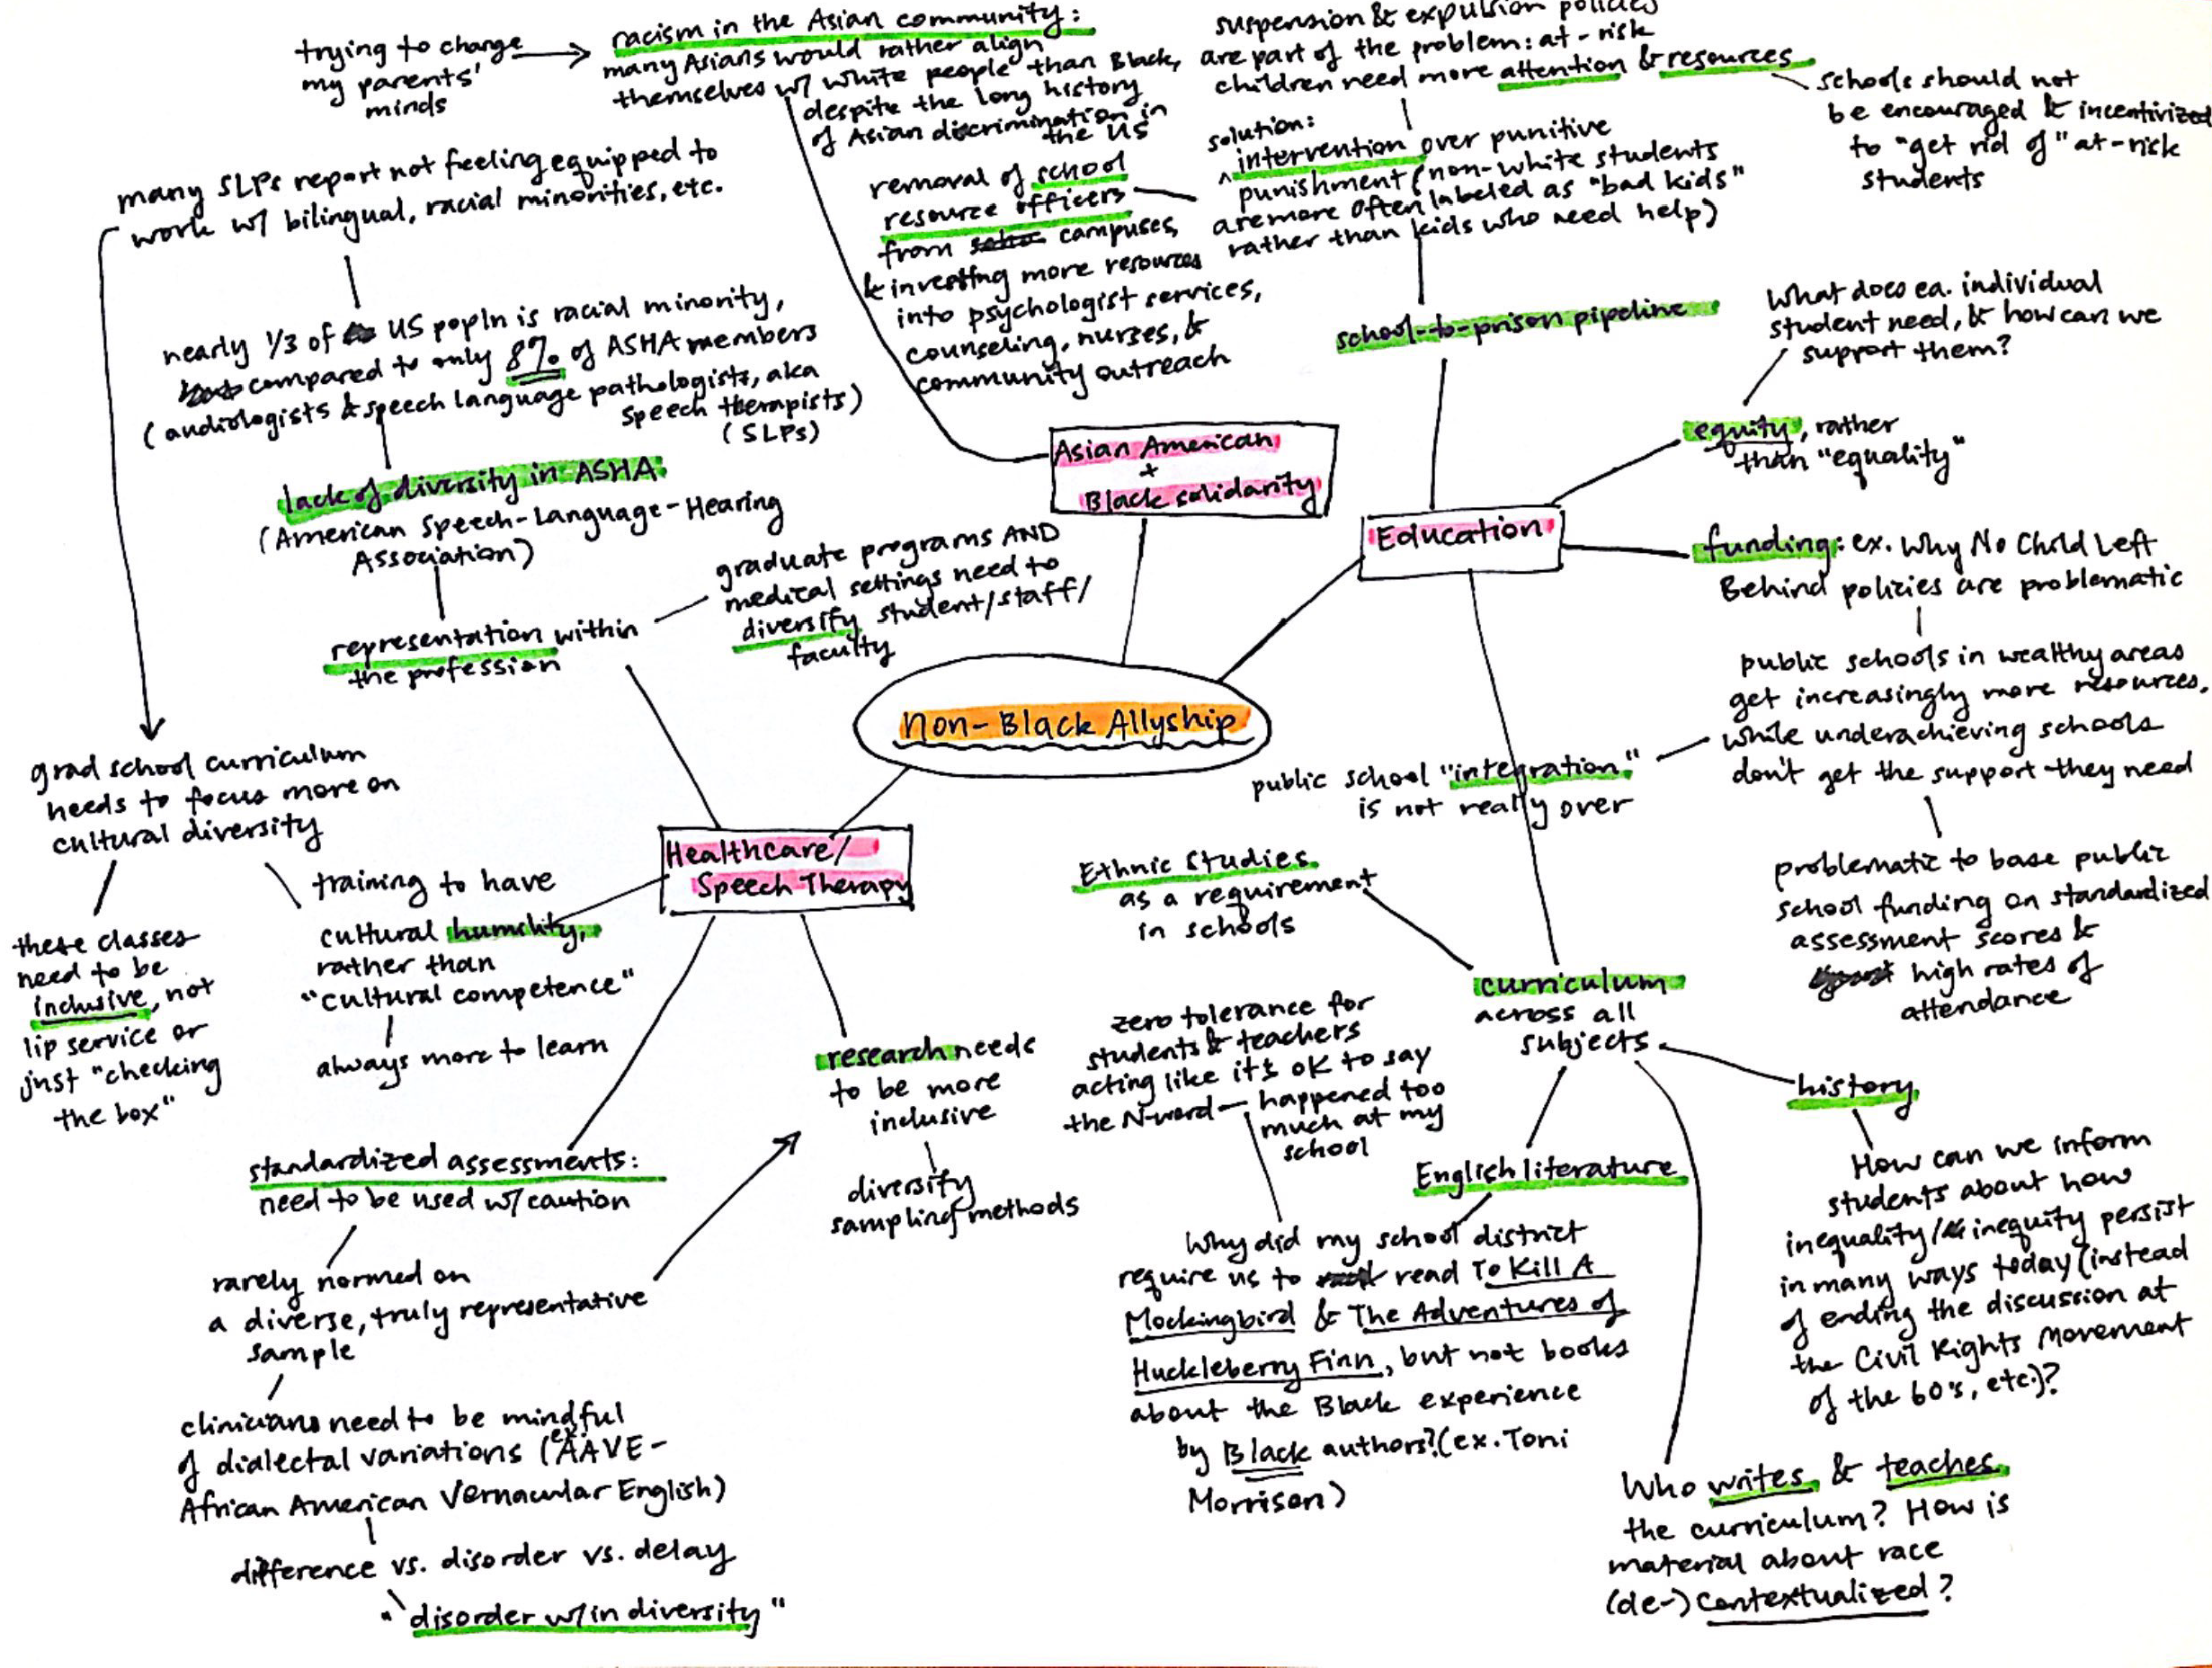 trying to change
my parents'
minds
racism in the Asian community:
many Asians would rather align
themselves w/ white people than Black,
despite the long history
of Asian discrimination in
the US
suspension & expulsion policies
are part of the problem: at-risk
children need more attention & resources
schools should not
be encouraged & incentivized
to "get rid of" at-risk
students
solution:
^ intervention over punitive
punishment (non-white students
are more often labeled as "bad kids"
rather than kids who need help)
removal of school
resource officers
from campuses,
& investing more resources
into psychologist services,
counseling, nurses, &
community outreach
school-to-prison pipeline
What does ea. individual
student need, & how can we
support them?
equity, rather
than "equality"
many SLPs report not feeling equipped to
work w/ bilingual, racial minorities, etc.
nearly 1/3 of US popln is racial minority,
compared to only 8% of ASHA members
(audiologists & speech language pathologists, aka
speech therapists)
(SLPs)
lack of diversity in ASHA:
(American Speech-Language-Hearing
Association)
representation within
the profession
graduate programs AND
medical settings need to
diversify student/staff/
faculty
Asian American
+
Black solidarity
Education
funding: ex. Why No Child Left
Behind policies are problematic
public schools in wealthy areas
get increasingly more resources,
while underachieving schools
don't get the support they need
public school "integration"
is not really over
problematic to base public
school funding on standardized
assessment scores &
high rates of
attendance
Non-Black Allyship
Healthcare/
Speech Therapy
grad school curriculum
needs to focus more on
cultural diversity
these classes
need to be
inclusive, not
lip service or
just "checking
the box"
training to have
cultural humility,
rather than
"cultural competence"
always more to learn
research needs
to be more
inclusive
diversify
sampling methods
standardized assessments:
need to be used w/ caution
rarely normed on
a diverse, truly representative
sample
clinicians need to be mindful
of dialectal variations (ex. AAVE-
African American Vernacular English)
difference vs. disorder vs. delay
"disorder w/in diversity"
Ethnic Studies
as a requirement
in schools
curriculum
across all
subjects
zero tolerance for
students & teachers
acting like it's OK to say
the N-word — happened too
much at my
school
English literature
Why did my school district
require us to read To Kill A
Mockingbird & The Adventures of
Huckleberry Finn, but not books
about the Black experience
by Black authors? (ex. Toni
Morrison)
history
How can we inform
students about how
inequality/inequity persist
in many ways today (instead
of ending the discussion at
the Civil Rights Movement
of the 60's, etc.)?
Who writes & teaches
the curriculum? How is
material about race
(de-) contextualized?